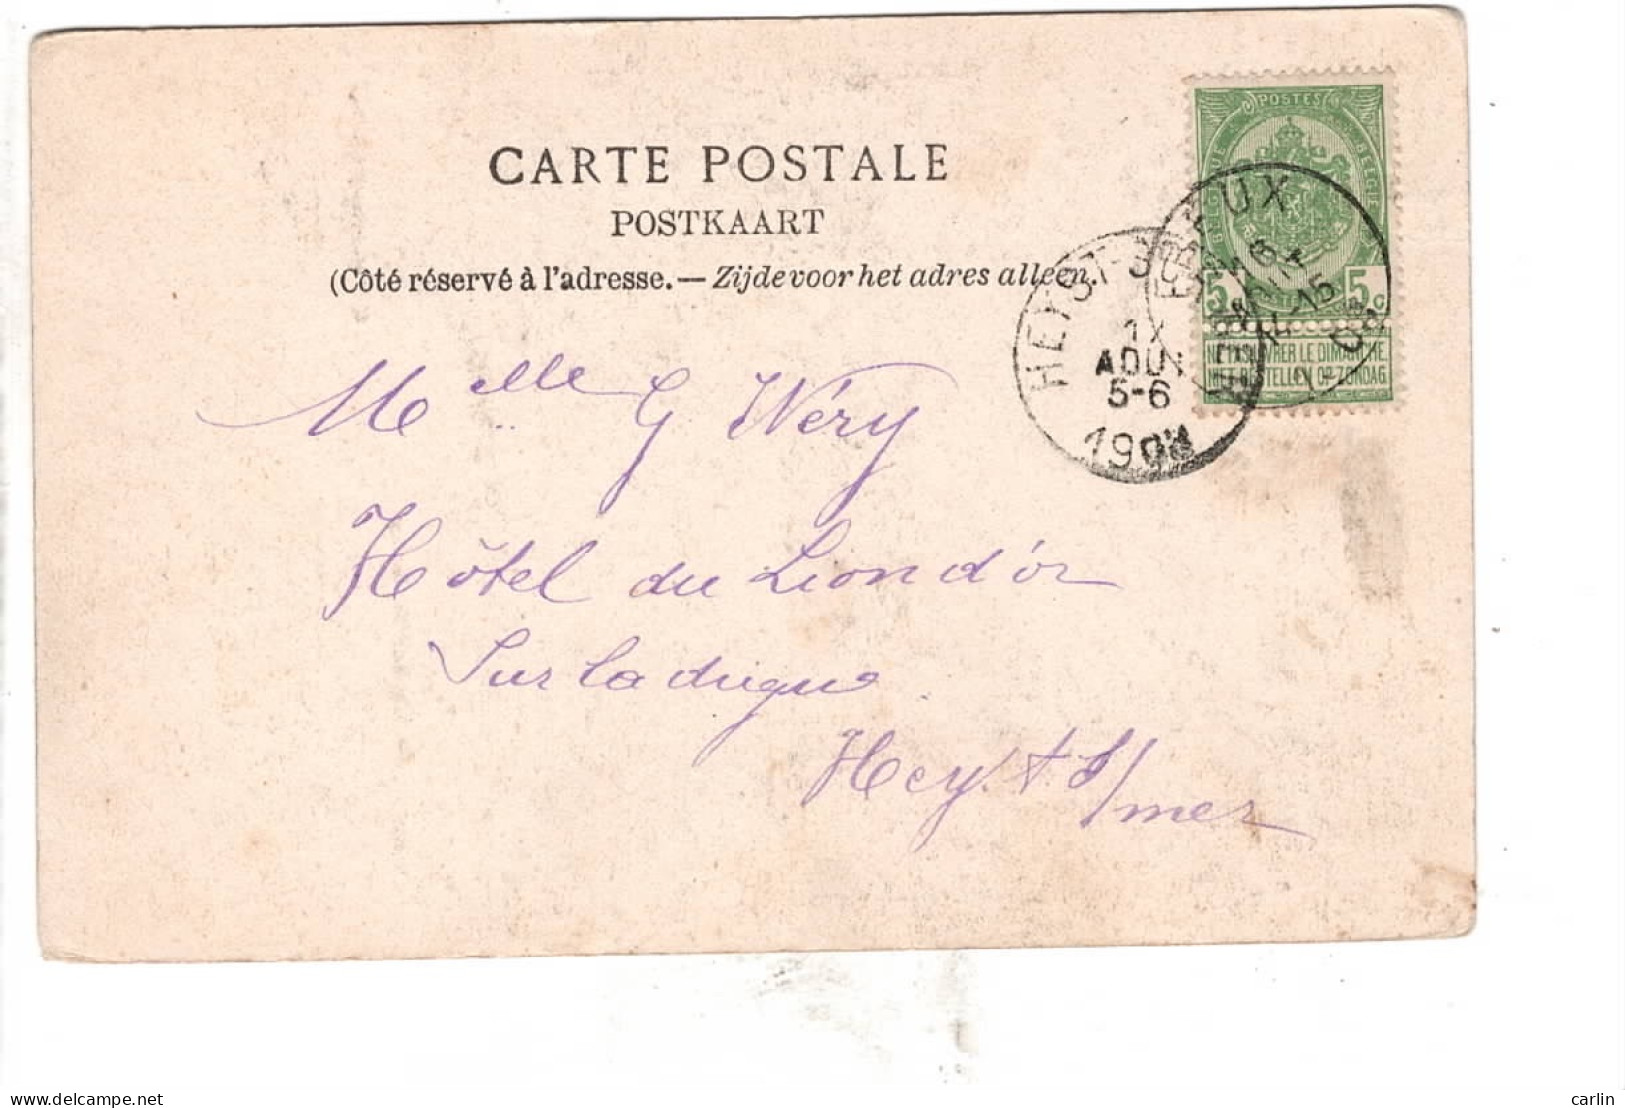 CARTE POSTALE
POSTKAART
(Côté réservé à l'adresse. — Zijde voor het adres alleen.)
POSTES
BELGIQUE
BELGIE
5 5c
NE PAS LIVRER LE DIMANCHE.
NIET BESTELLEN OP ZONDAG.
HEYST
AOUT
5-6
Melle G Wéry
Hôtel du Lion d'or
Sur la digue
Heyst s/mer
www.delcampe.net
carlin